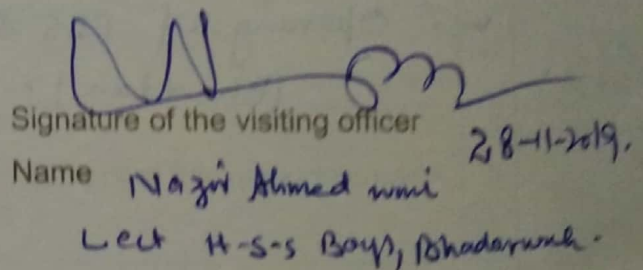 Signature of the visiting officer
28-11-2019.
Name Nazir Ahmed wani
Lect H-S-S Boys, Bhadarwah.